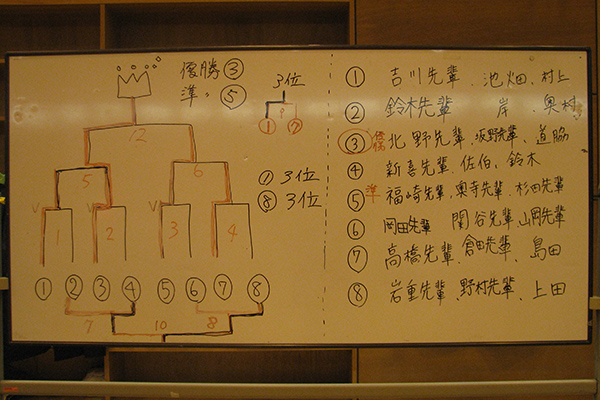 優勝③
準〃⑤
3位
① ⑦
12
5 6
① 3位
⑧ 3位
V V V
1 2 3 4
① ② ③ ④ ⑤ ⑥ ⑦ ⑧
7 10 8
① 吉川先輩、池畑、村上
② 鈴木先輩 岸 奥村
③ 優勝 北野先輩、坂野先輩、道脇
④ 新喜先輩、佐伯、鈴木
⑤ 準 福崎先輩、奥寺先輩、杉田先輩
⑥ 岡田先輩 関谷先輩 山岡先輩
⑦ 高橋先輩、倉田先輩、島田
⑧ 岩重先輩、野村先輩、上田